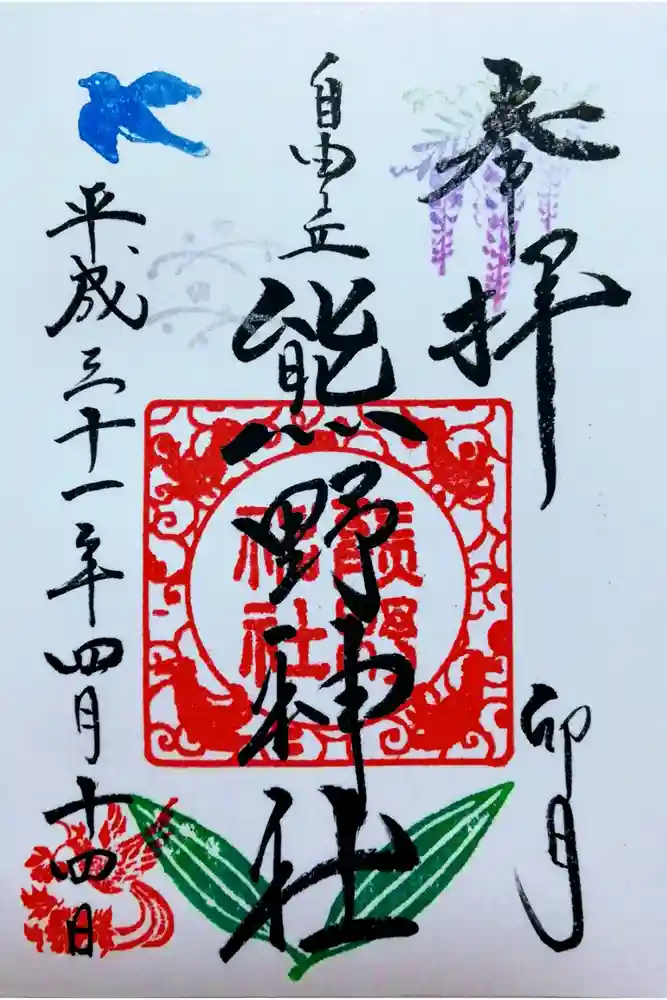 奉拝
卯月
自由丘
熊野神社
熊野神社
平成三十一年四月十四日